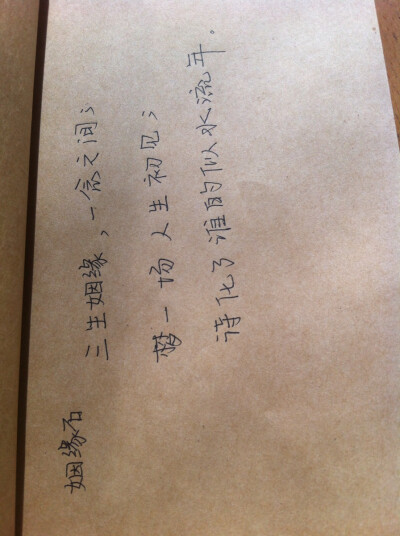 姻缘石
三生姻缘，一念之间；
梦一场人生初见；
诗化了谁的似水流年。